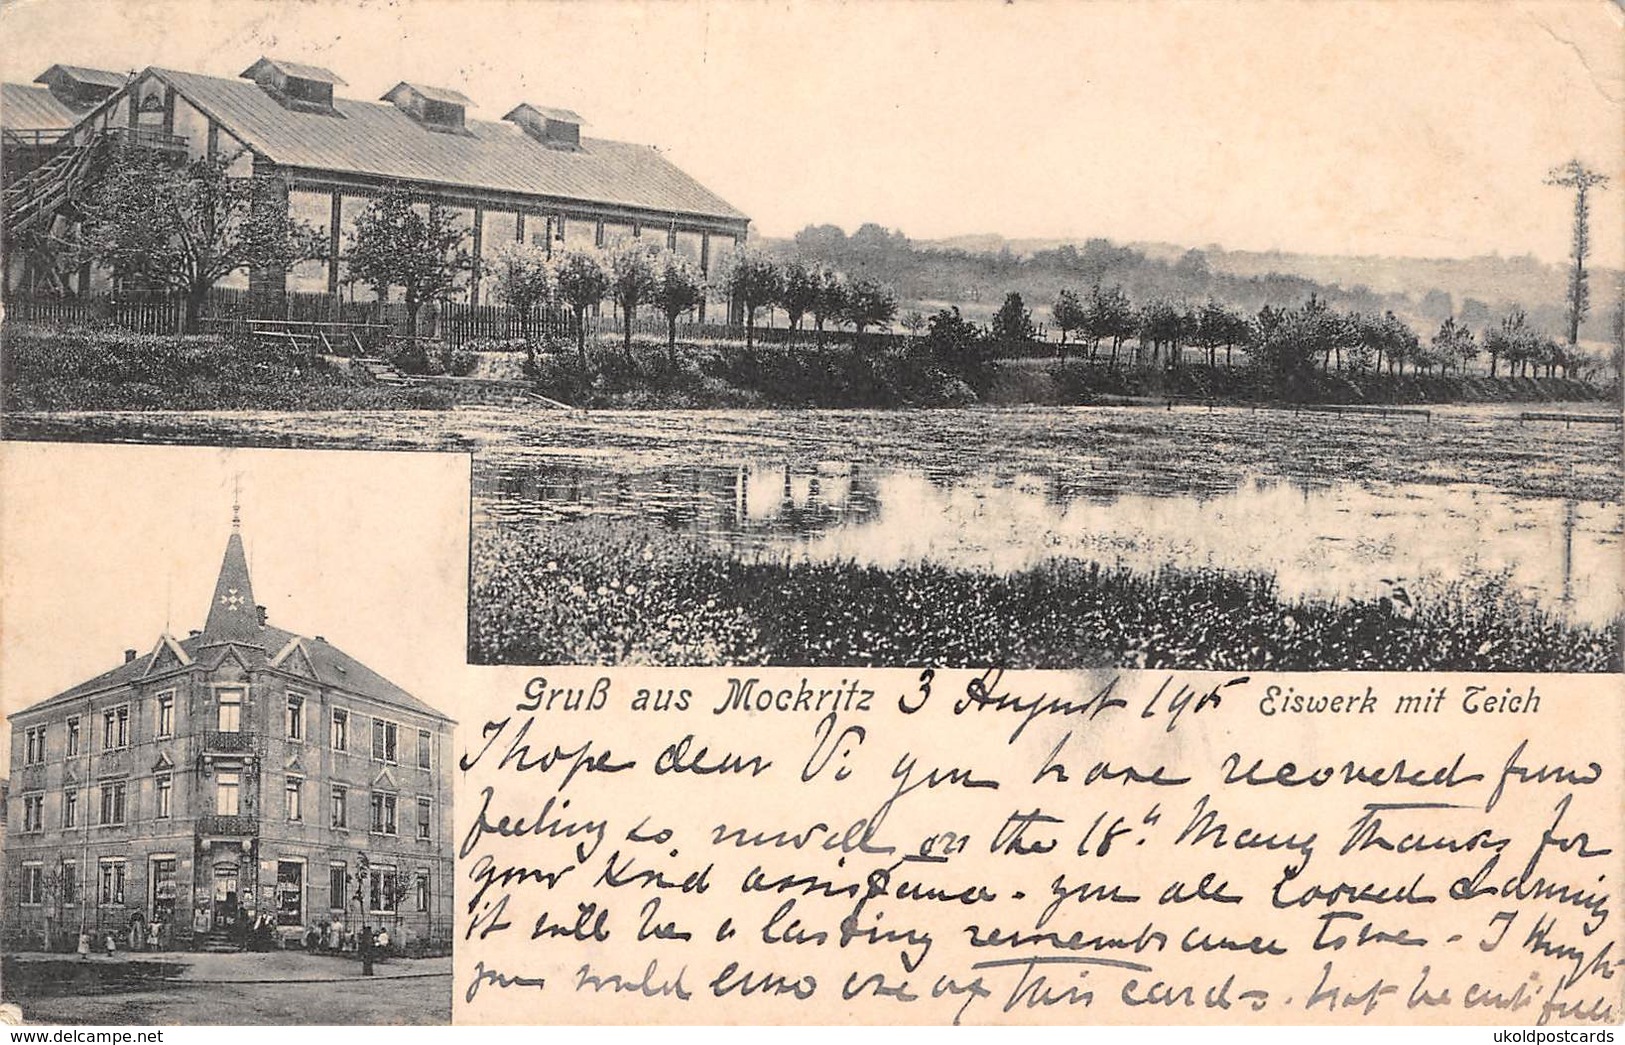 Gruß aus Mockritz 3 August 1905 Eiswerk mit Teich
I hope dear Vi you have recovered from
feeling so unwell on the 18th. Many thanks for
your kind assistance - you all looked charming
it will be a lasting remembrance to me - I thought
you would like one of this cards. not beautiful
ukoldpostcards